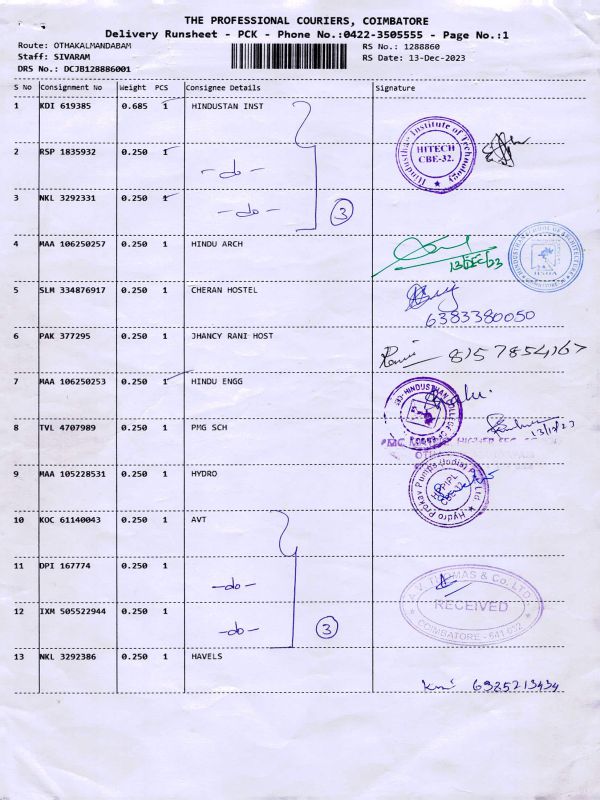 THE PROFESSIONAL COURIERS, COIMBATORE
Delivery Runsheet - PCK - Phone No.:0422-3505555 - Page No.:1
Route: OTHAKALMANDABAM
RS No.: 1288860
Staff: SIVARAM
RS Date: 13-Dec-2023
DRS No.: DCJB128886001
S No Consignment No Weight PCS Consignee Details Signature
1 KDI 619385 0.685 1 HINDUSTAN INST
Hindusthan Institute of Technology
HITECH
CBE-32.
2 RSP 1835932 0.250 1 -do-
3 NKL 3292331 0.250 1 -do- 3
4 MAA 106250257 0.250 1 HINDU ARCH
13/DEC/23
5 SLM 334876917 0.250 1 CHERAN HOSTEL
6383380050
6 PAK 377295 0.250 1 JHANCY RANI HOST
8157854167
7 MAA 106250253 0.250 1 HINDU ENGG
8 TVL 4707989 0.250 1 PMG SCH
13/12/23
9 MAA 105228531 0.250 1 HYDRO
Hydro Prokav Pumps (India) Pvt. Ltd
10 KOC 61140043 0.250 1 AVT
11 DPI 167774 0.250 1 -do-
12 IXM 505522944 0.250 1 -do- 3
A.V. THOMAS & Co. LTD.
RECEIVED
COIMBATORE - 641 032
13 NKL 3292386 0.250 1 HAVELS
6925213434